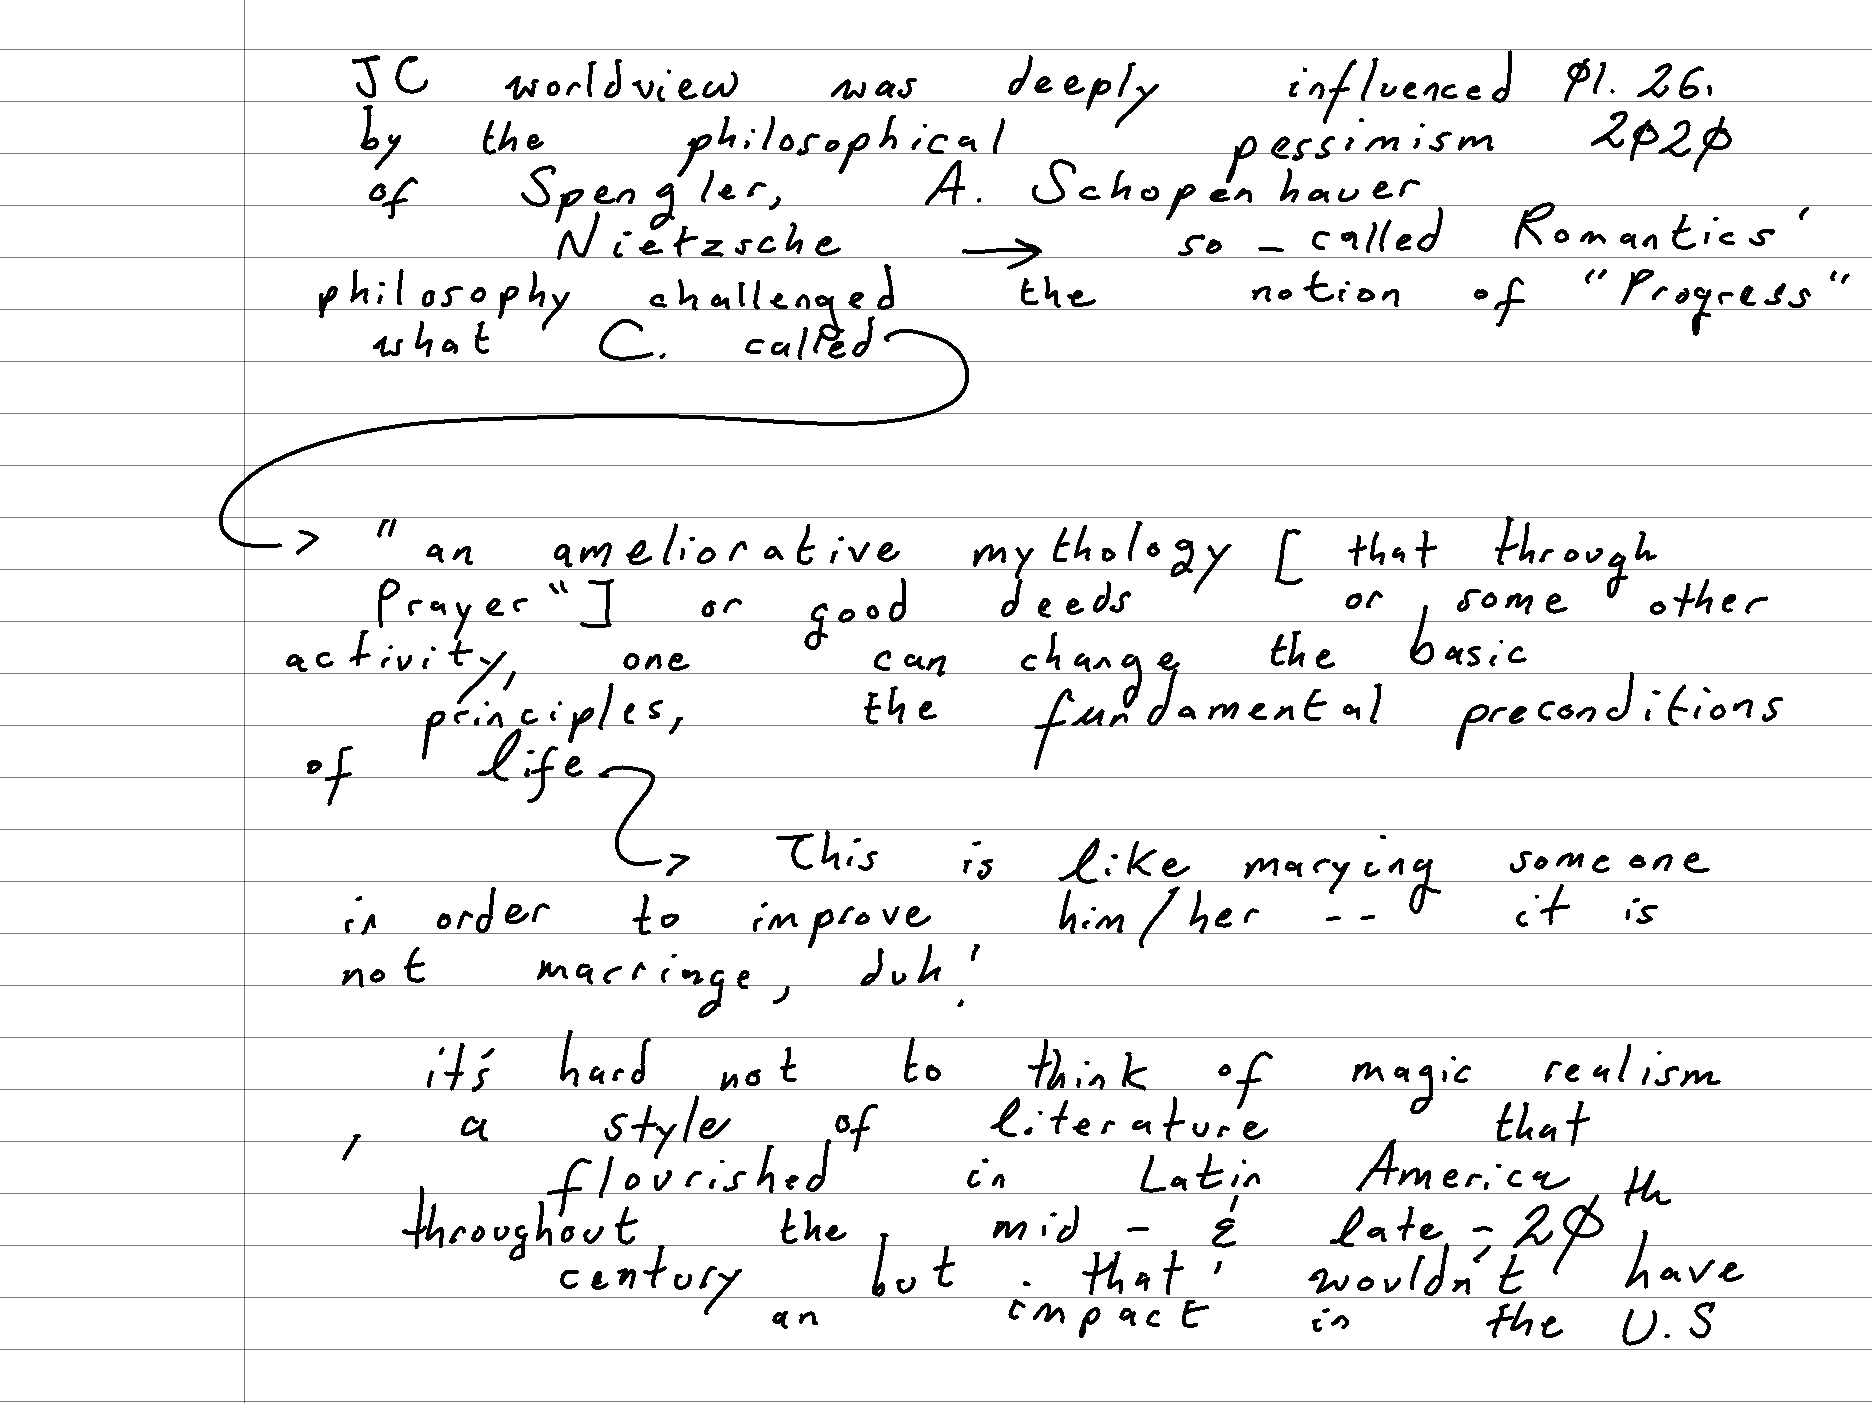 JC worldview was deeply influenced 01. 26.
by the philosophical pessimism 2020
of Spengler, A. Schopenhauer
Nietzsche → so-called Romantics'
philosophy challenged the notion of "Progress"
what C. called
→ "an ameliorative mythology [that through
Prayer"] or good deeds or some other
activity, one can change the basic
principles, the fundamental preconditions
of life
→ This is like marying someone
in order to improve him/her -- it is
not marriage, duh!
it's hard not to think of magic realism
, a style of literature that
flourished in Latin America
throughout the mid - & late - 20th
century but that wouldn't have
an impact in the U.S